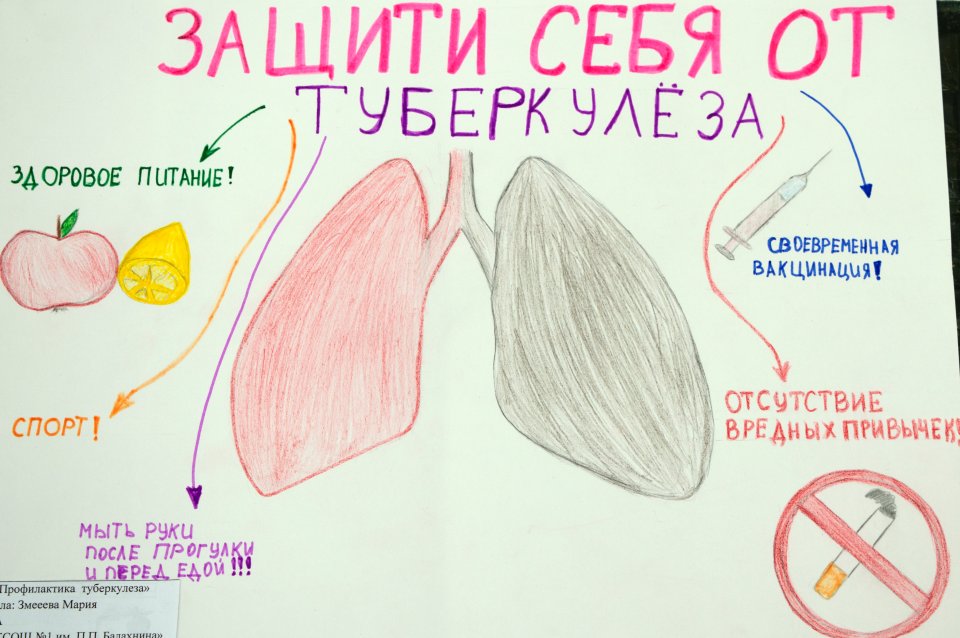 ЗАЩИТИ СЕБЯ ОТ
ТУБЕРКУЛЁЗА
ЗДОРОВОЕ ПИТАНИЕ!
СВОЕВРЕМЕННАЯ
ВАКЦИНАЦИЯ!
СПОРТ!
ОТСУТСТВИЕ
ВРЕДНЫХ ПРИВЫЧЕК!
МЫТЬ РУКИ
ПОСЛЕ ПРОГУЛКИ
И ПЕРЕД ЕДОЙ!!!
Профилактика туберкулеза»
ла: Змеева Мария
А
СОШ №1 им. П.П. Балахнина»